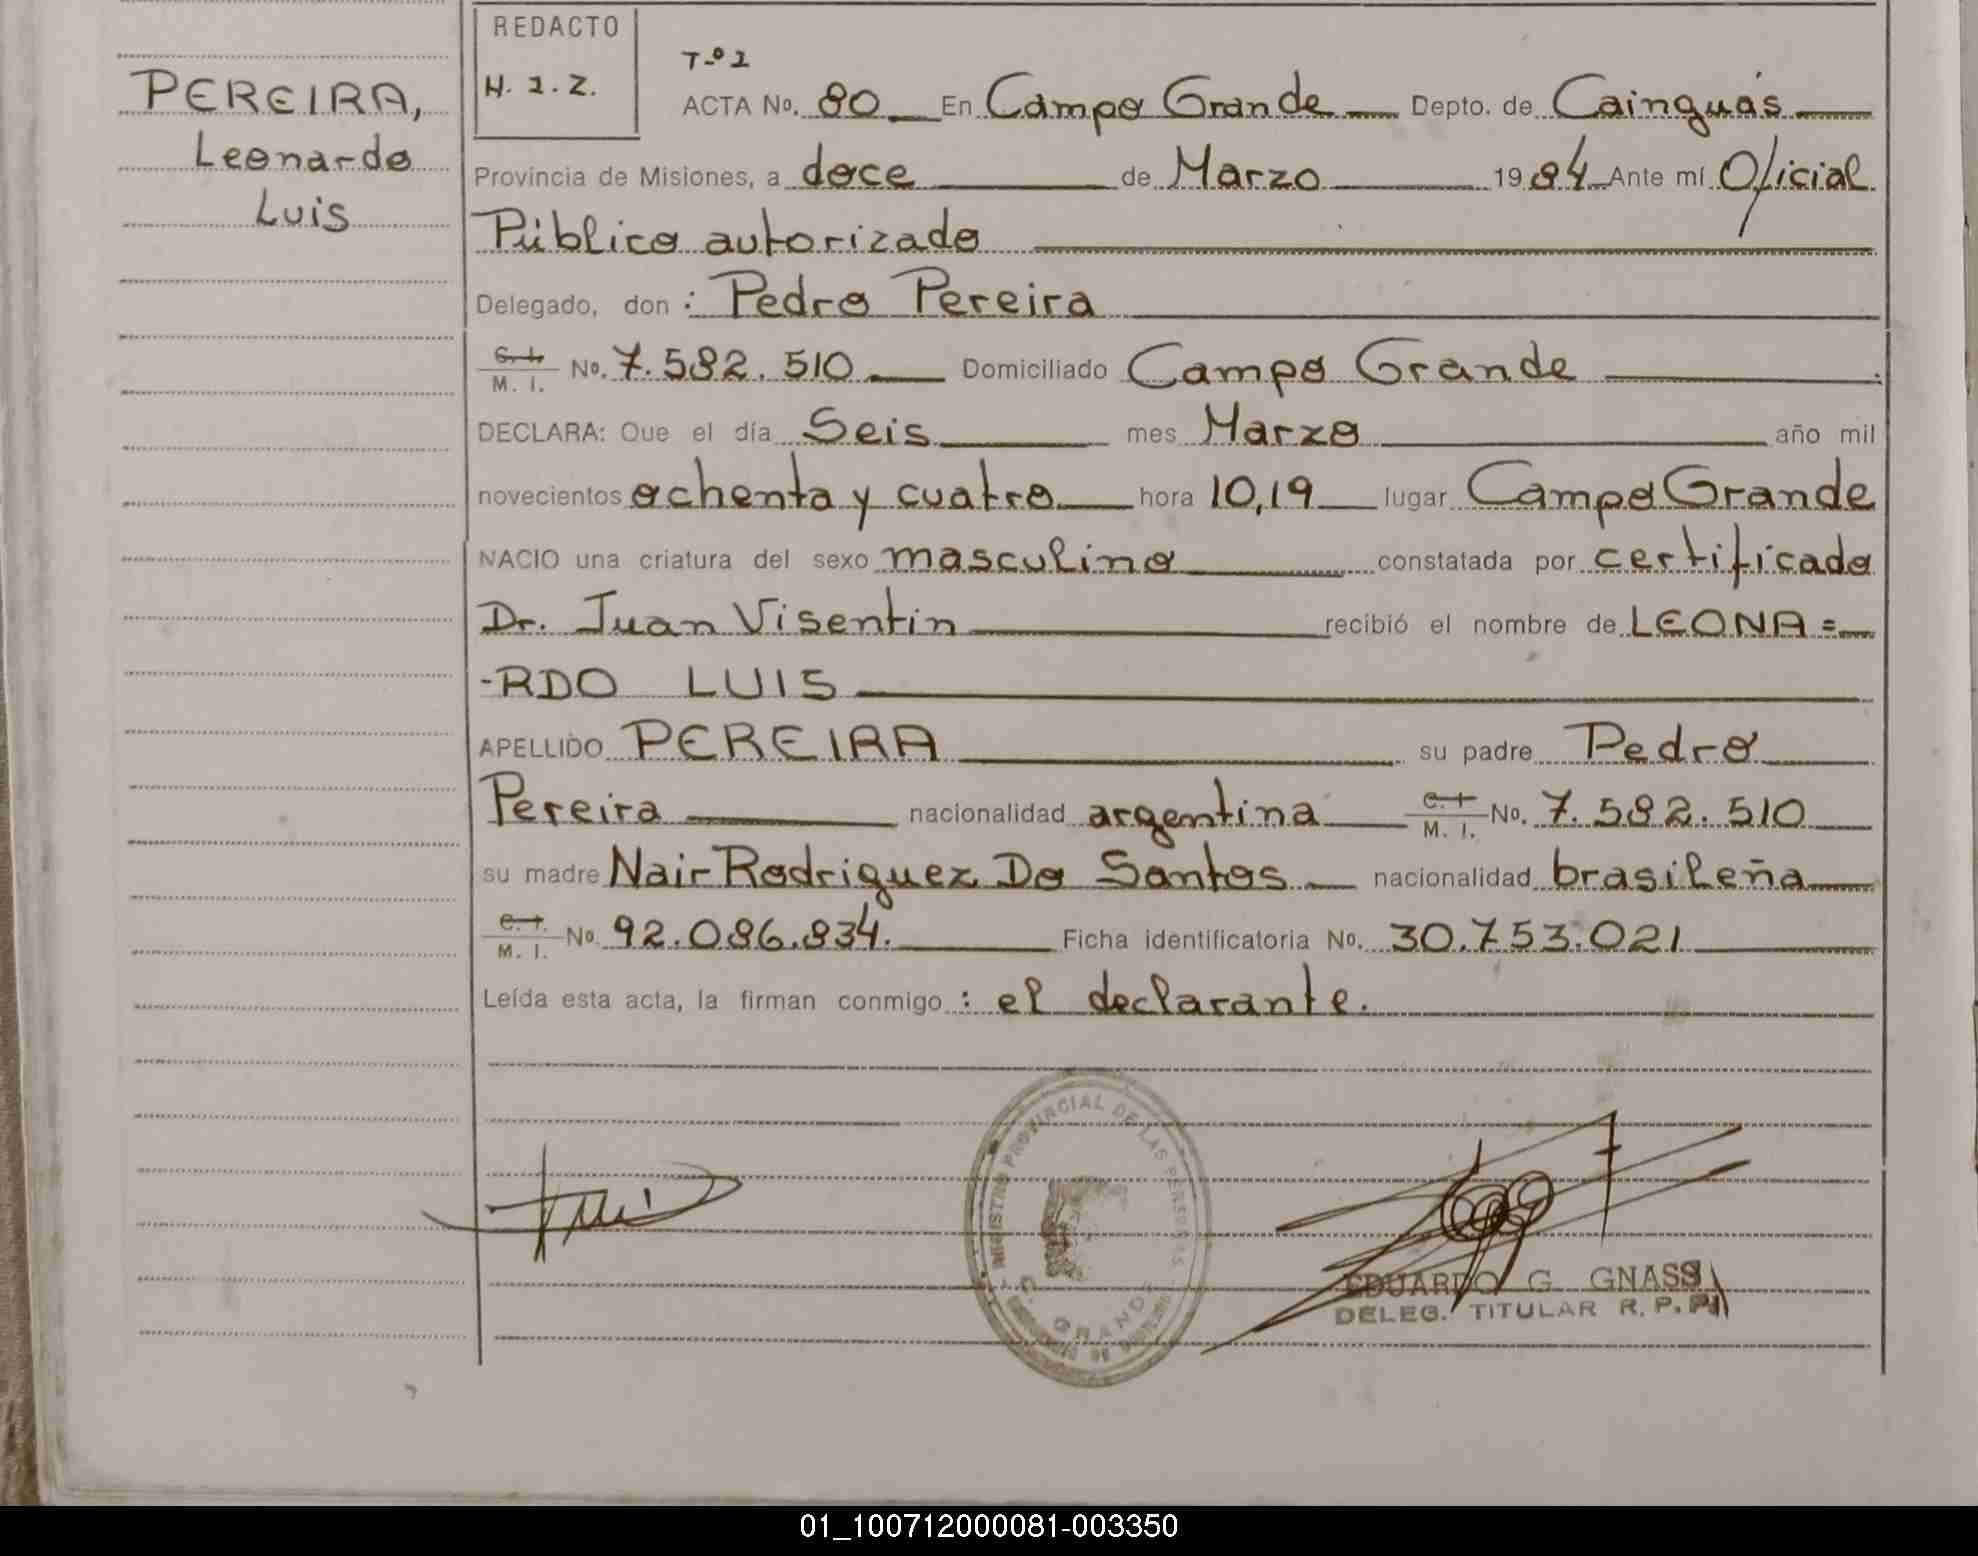 REDACTO
H. I. Z.
T-º 1
PEREIRA,
Leonardo
Luis
ACTA No. 80 En Campo Grande Depto. de Cainguás
Provincia de Misiones, a doce de Marzo 1984 Ante mí Oficial
Público autorizado
Delegado, don: Pedro Pereira
C. I. / M. I. No. 7.582.510 Domiciliado Campo Grande
DECLARA: Que el día Seis mes Marzo año mil
novecientos ochenta y cuatro hora 10,19 lugar Campo Grande
NACIO una criatura del sexo masculino constatada por certificado
Dr. Juan Visentin recibió el nombre de LEONA=
-RDO LUIS
APELLIDO PEREIRA su padre Pedro
Pereira nacionalidad argentina C. I. / M. I. No. 7.582.510
su madre Nair Rodriguez Do Santos nacionalidad brasileña
C. I. / M. I. No 92.086.834. Ficha identificatoria No. 30.753.021
Leída esta acta, la firman conmigo: el declarante.
REGISTRO PROVINCIAL DE LAS PERSONAS
GRANDE
EDUARDO G. GNASS
DELEG. TITULAR R. P. P.
01_100712000081-003350